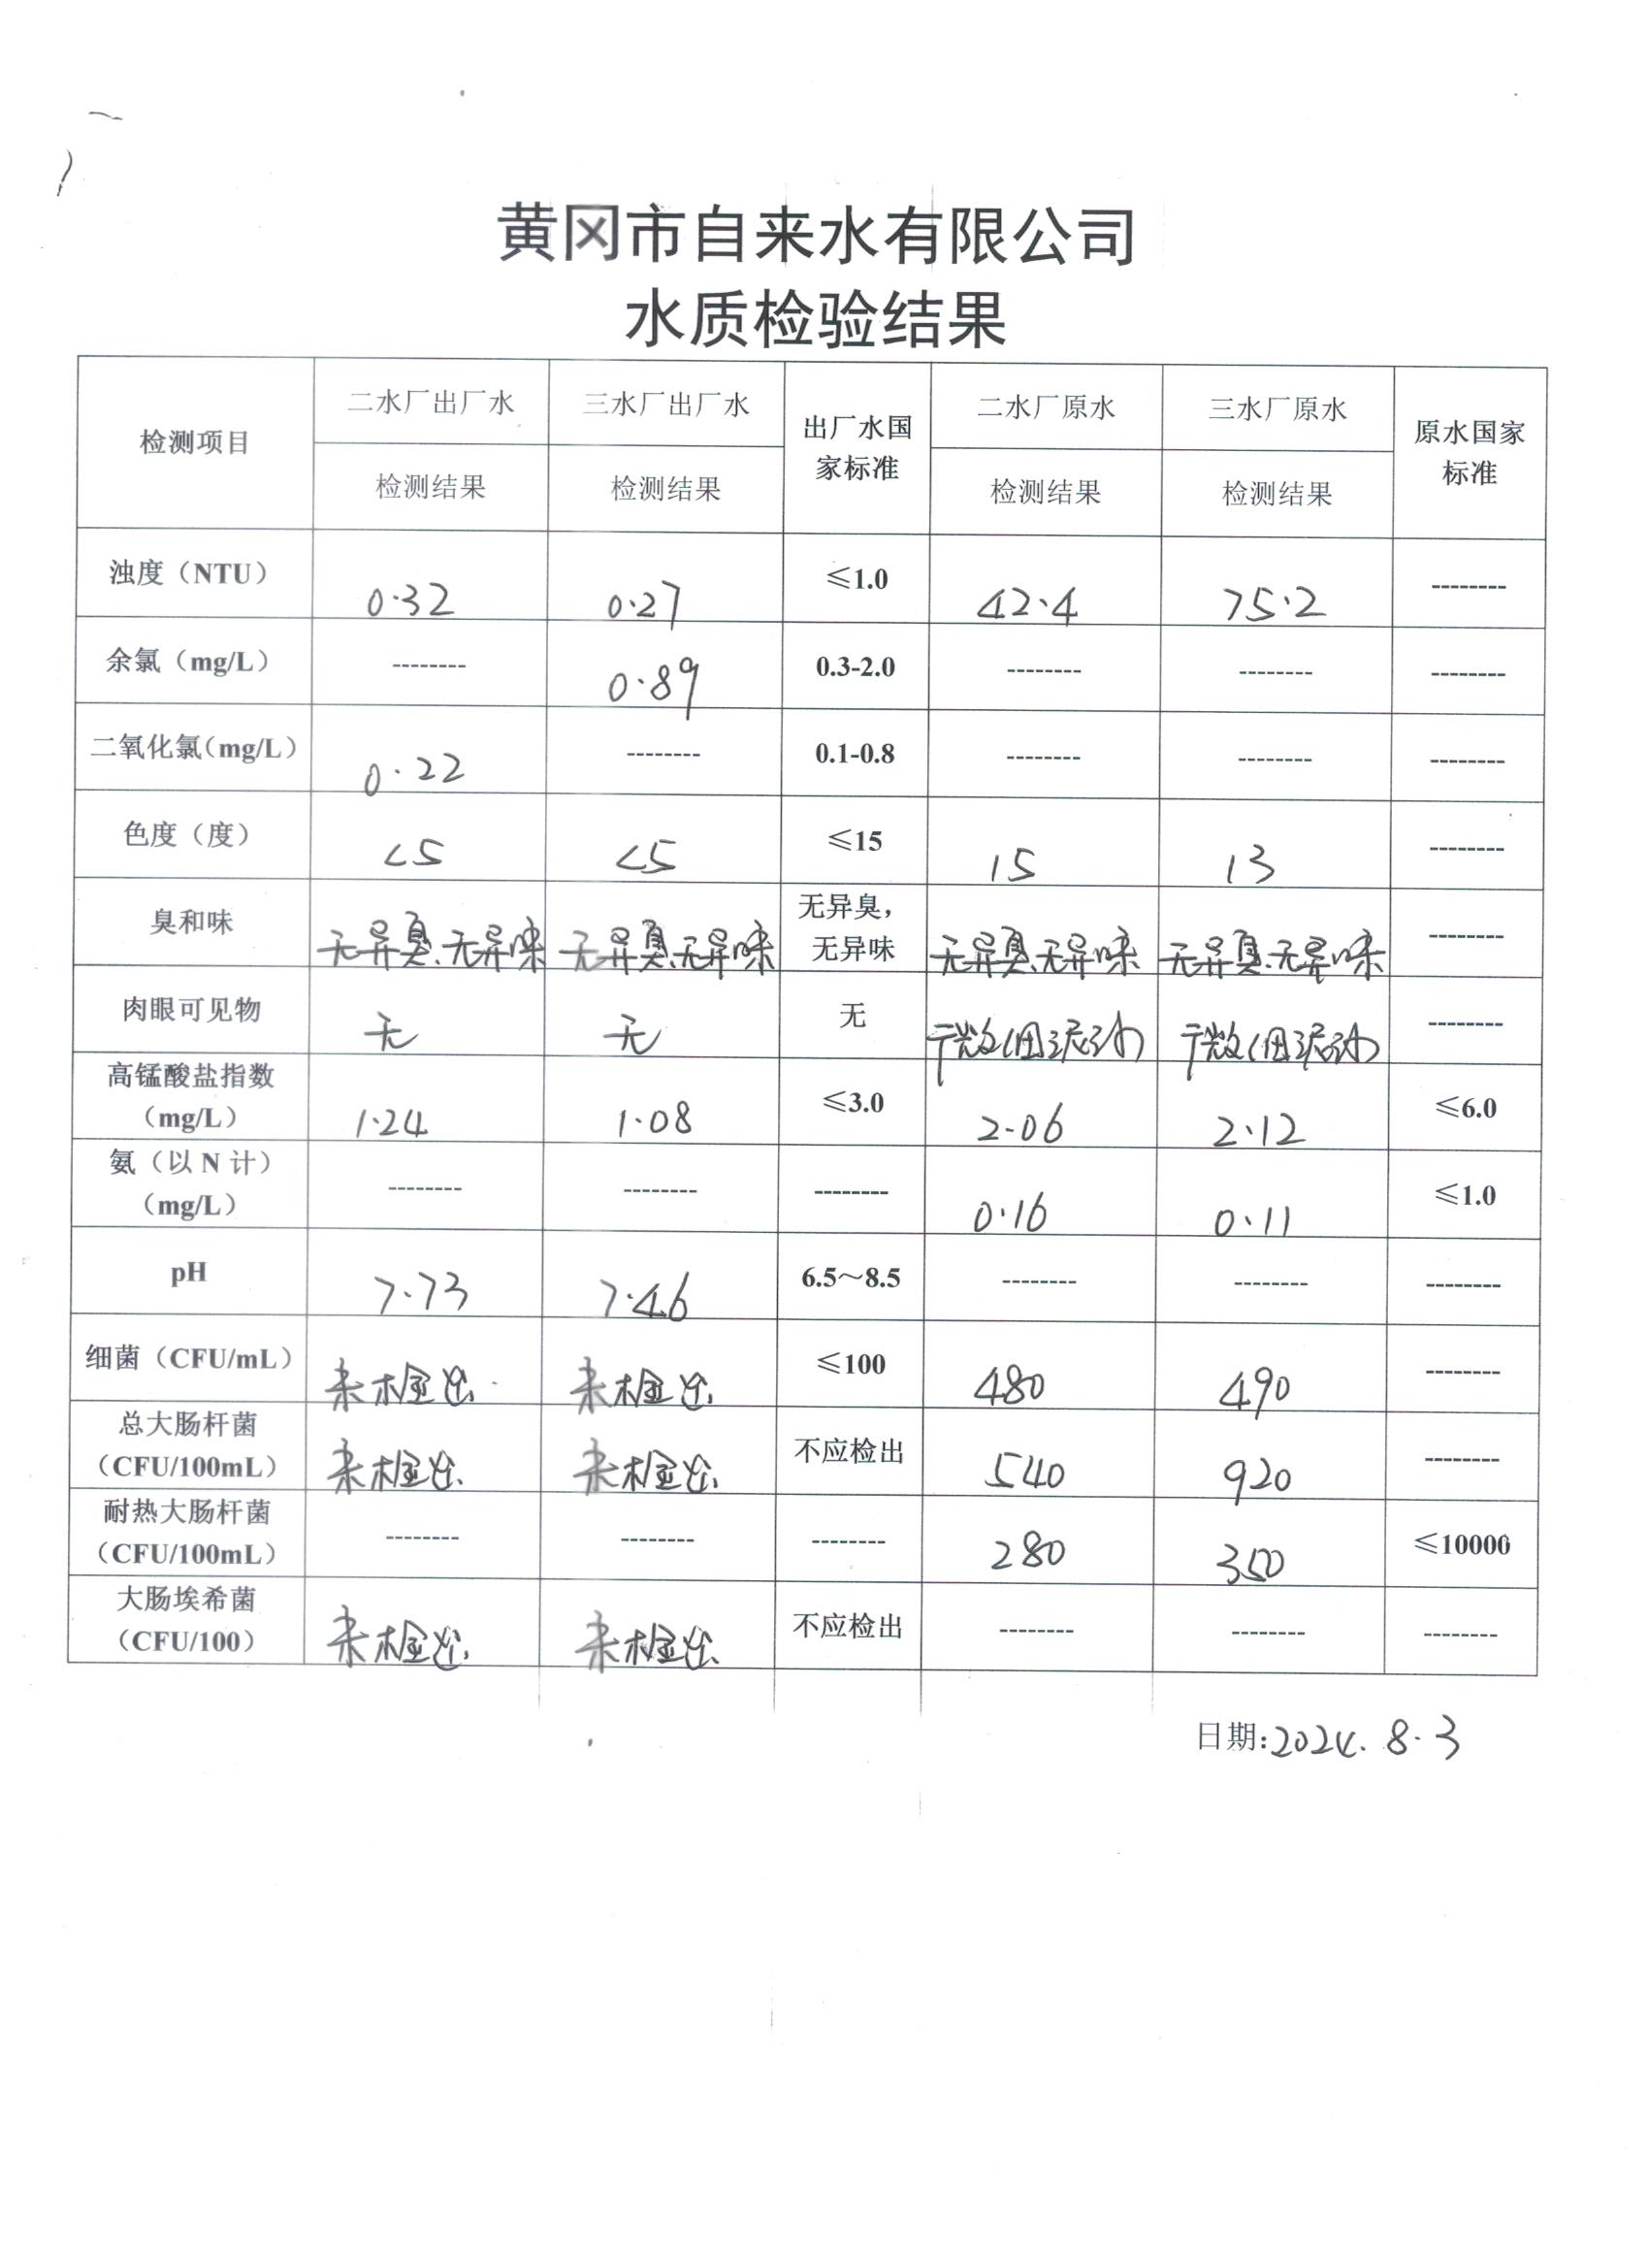 黄冈市自来水有限公司
水质检验结果
检测项目 二水厂出厂水 三水厂出厂水 出厂水国家标准 二水厂原水 三水厂原水 原水国家标准
检测结果 检测结果 检测结果 检测结果
浊度（NTU） 0.32 0.27 ≤1.0 42.4 75.2 --------
余氯（mg/L） -------- 0.89 0.3-2.0 -------- -------- --------
二氧化氯（mg/L） 0.22 -------- 0.1-0.8 -------- -------- --------
色度（度） <5 <5 ≤15 15 13 --------
臭和味 无异臭、无异味 无异臭、无异味 无异臭，无异味 无异臭、无异味 无异臭、无异味 --------
肉眼可见物 无 无 无 微细泥沙 微细泥沙 --------
高锰酸盐指数（mg/L） 1.24 1.08 ≤3.0 2.06 2.12 ≤6.0
氨（以 N 计）（mg/L） -------- -------- -------- 0.16 0.11 ≤1.0
pH 7.73 7.46 6.5～8.5 -------- -------- --------
细菌（CFU/mL） 未检出 未检出 ≤100 480 490 --------
总大肠杆菌（CFU/100mL） 未检出 未检出 不应检出 540 920 --------
耐热大肠杆菌（CFU/100mL） -------- -------- -------- 280 350 ≤10000
大肠埃希菌（CFU/100） 未检出 未检出 不应检出 -------- -------- --------
日期:2024.8.3